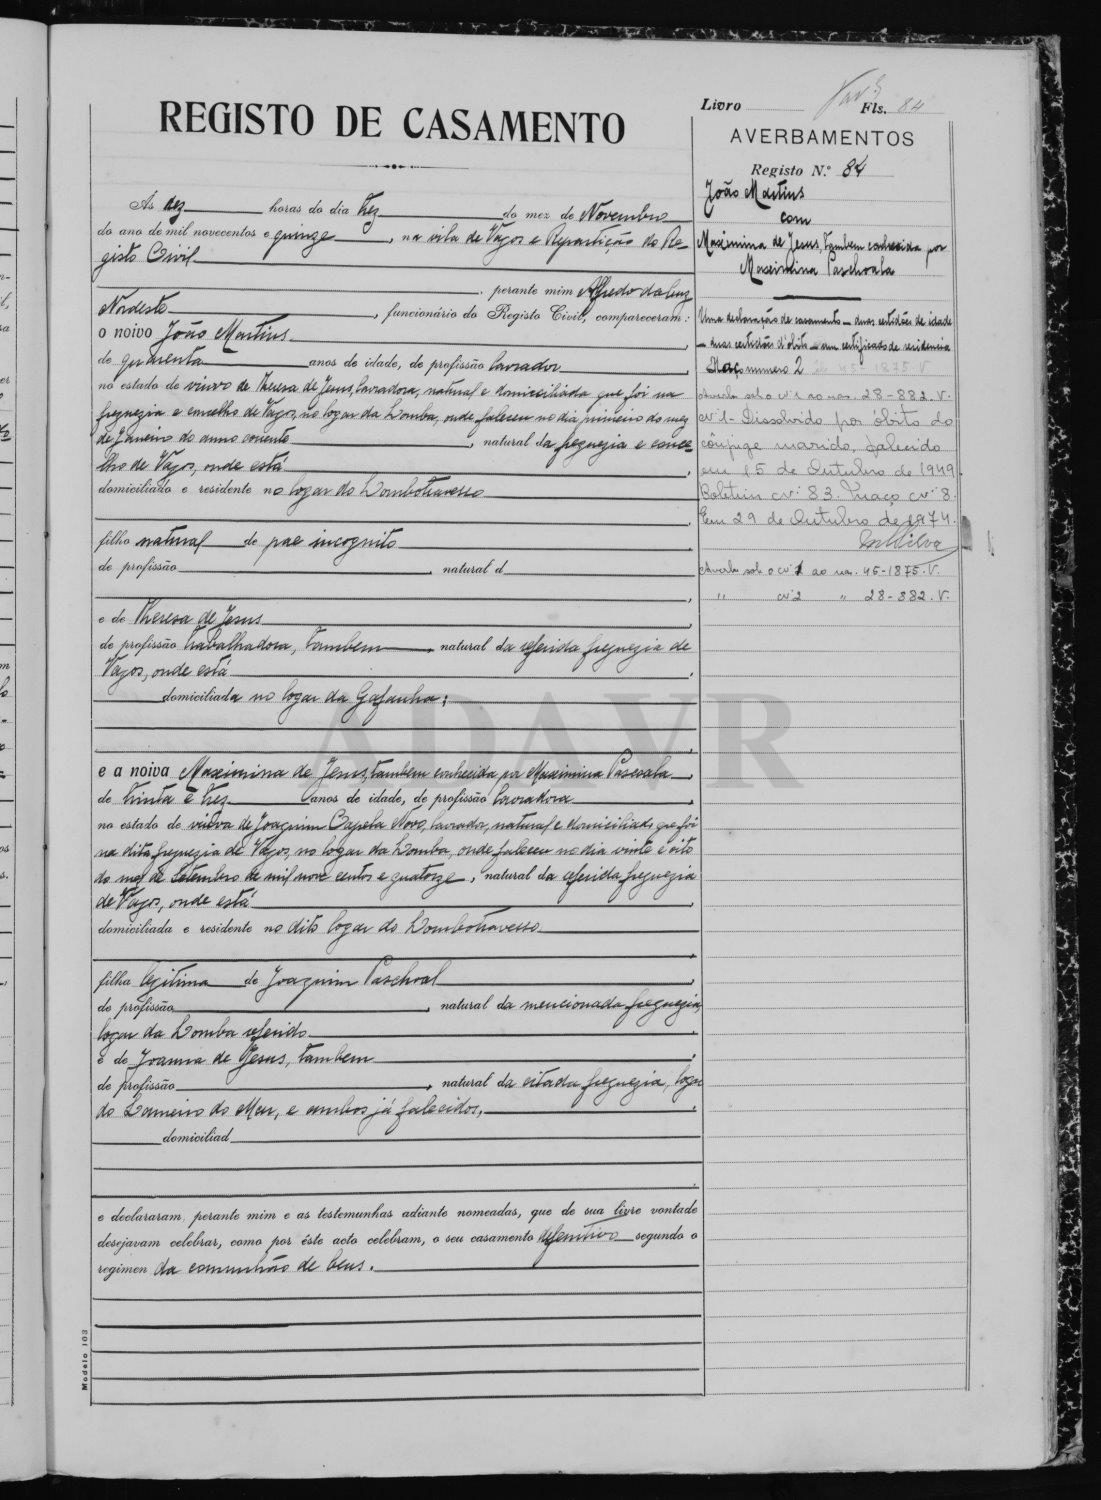 Livro Fls. 84
REGISTO DE CASAMENTO
Ás dez horas do dia trez do mez de Novembro
do ano de mil novecentos e quinze, na vila de Vagos e Repartição do Re-
gisto Civil
perante mim Alfredo da Cruz
Nordeste, funcionário do Registo Civil, compareceram:
o noivo João Martins
de quarenta anos de idade, de profissão lavrador
no estado de viuvo de Theresa de Jesus, lavradora, natural e domiciliada que foi na
freguezia e concelho de Vagos, no logar da Lomba, onde faleceu no dia primeiro do mez
de Janeiro do anno corrente, natural da freguezia e conce-
lho de Vagos, onde está
domiciliado e residente no logar do Lombotravesso
filho natural de pae incognito
de profissão, natural d
e de Theresa de Jesus
de profissão trabalhadora, tambem, natural da referida freguezia de
Vagos, onde está
domiciliada no logar da Gafanha;
e a noiva Maximina de Jesus, tambem conhecida por Maximina Pascoala
de trinta e trez anos de idade, de profissão lavradora
no estado de viuva de Joaquim Capela Novo, lavrador, natural e domiciliado que foi
na dita freguezia de Vagos, no logar da Lomba, onde faleceu no dia vinte e oito
do mez de Setembro de mil nove centos e quatorze, natural da referida freguezia
de Vagos, onde está
domiciliada e residente no dito logar do Lombotravesso
filha legitima de Joaquim Paschoal
de profissão, natural da mencionada freguezia,
logar da Lomba referido
e de Joanna de Jesus, tambem
de profissão, natural da citada freguezia, logar
do Lameiro do Mar, e ambos já falecidos,
domiciliad
e declararam, perante mim e as testemunhas adiante nomeadas, que de sua livre vontade
desejavam celebrar, como por êste acto celebram, o seu casamento definitivo segundo o
regimen da comunhão de bens.
Modelo 103
AVERBAMENTOS
Registo N.º 84
João Martins
com
Maximina de Jesus, tambem conhecida por
Maximina Paschoala
Uma declaração de casamento — duas certidões de idade
— duas certidões d'óbito — um certificado de residencia
Maço numero 2
28-882. V.
nº 1 - Dissolvido por óbito do
cônjuge marido, falecido
em 15 de Outubro de 1949.
Boletim nº 83. Maço nº 8.
Em 29 de Outubro de 1974.
Averb. sob o nº 1 ao nas. 45-1875. V.
" nº 2 " 28-882. V.
ADAVR